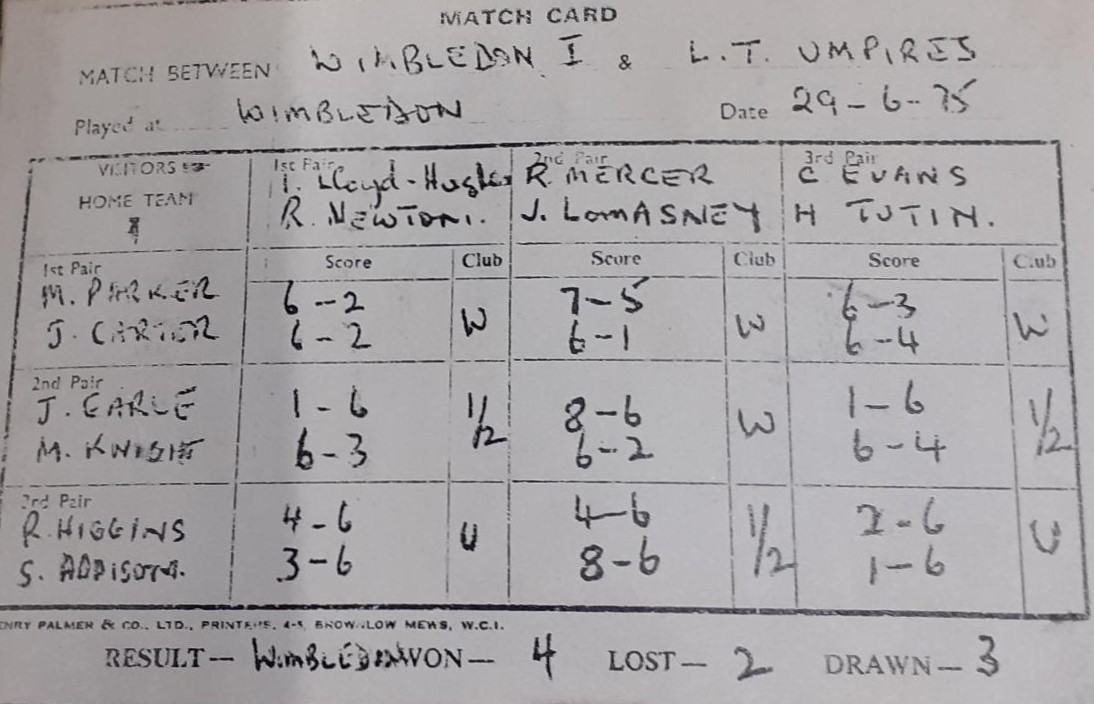 MATCH CARD
MATCH BETWEEN WIMBLEDON I & L.T. UMPIRES
Played at WIMBLEDON Date 29-6-75
VISITORS
HOME TEAM
1st Pair 2nd Pair 3rd Pair
I. Lloyd-Hughes R. MERCER C EVANS
R. NEWTON. J. LOMASNEY H TUTIN.
Score Club Score Club Score Club
1st Pair
M. PARKER 6-2 7-5 6-3
J. CARTER 6-2 W 6-1 W 6-4 W
2nd Pair
J. EARLE 1-6 8-6 1-6
M. KNIGHT 6-3 1/2 6-2 W 6-4 1/2
3rd Pair
R. HIGGINS 4-6 4-6 2-6
S. ADDISON. 3-6 U 8-6 1/2 1-6 U
ENRY PALMER & CO., LTD., PRINTERS, 4-5, BROWNLOW MEWS, W.C.1.
RESULT— WIMBLEDON WON— 4 LOST— 2 DRAWN— 3